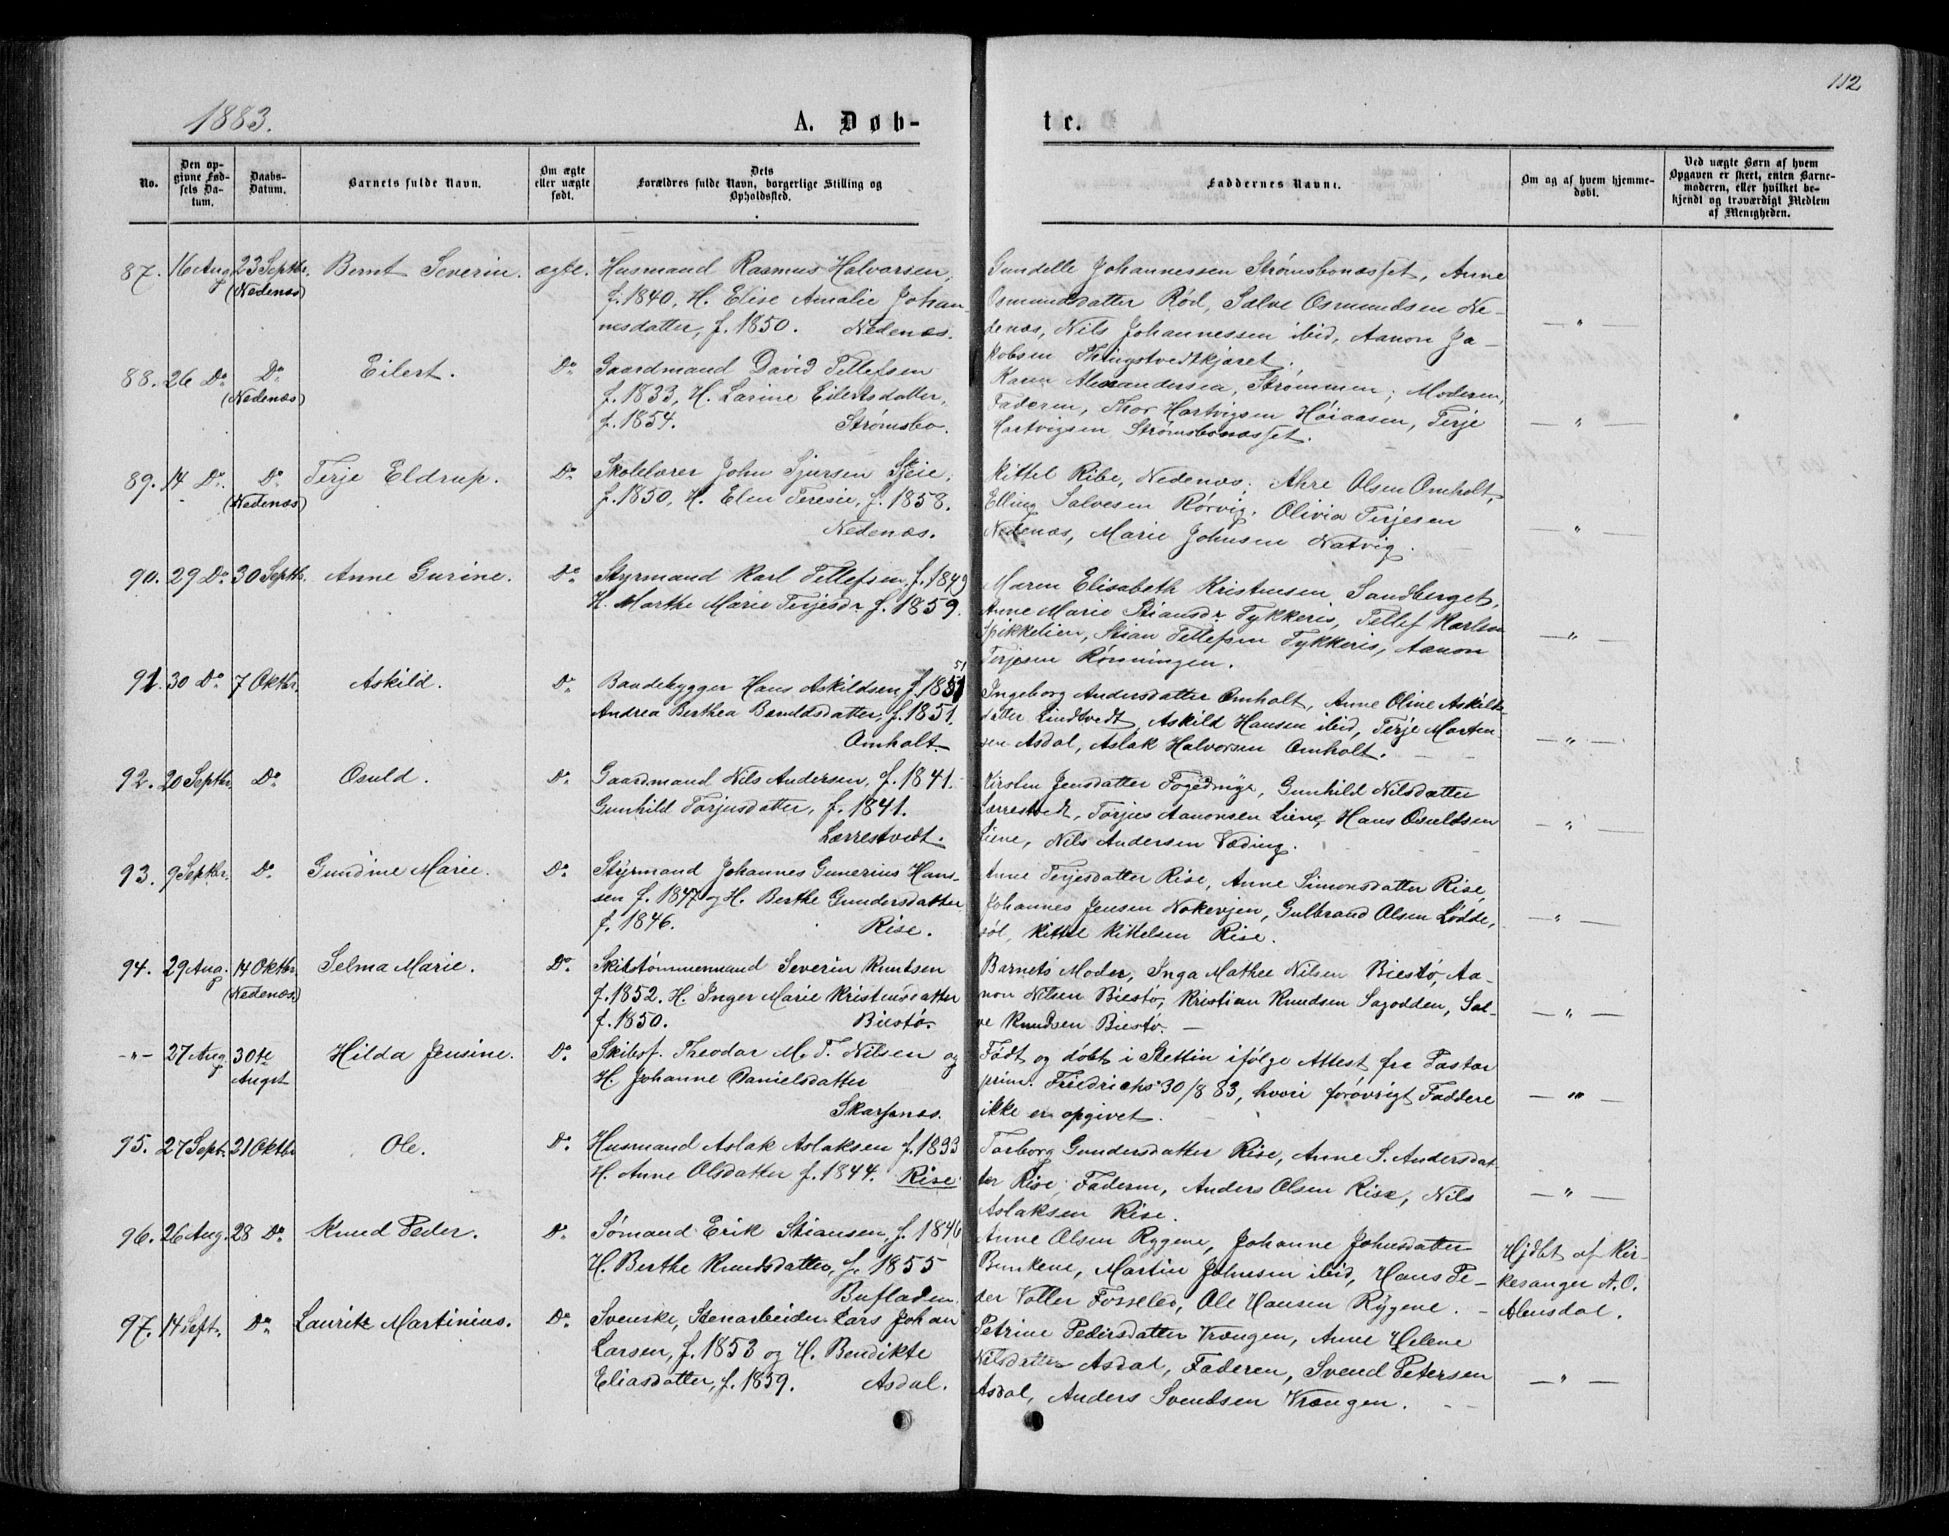 112
1883.
A. Døb-
te.
No.
Den op-
givne Fød-
sels Da-
tum.
Daabs-
Datum.
Barnets fulde Navn.
Om ægte
eller uægte
født.
Dets
Forældres fulde Navn, borgerlige Stilling og
Opholdssted.
Faddernes Navne.
Om og af hvem hjemme-
døbt.
Ved uægte Børn af hvem
Opgaven er skeet, enten Barne-
moderen, eller hvilket be-
kjendt og troværdigt Medlem
af Menigheden.
87. 16 Aug 23 Septbr. Bernt Severin. ægte.
(Nedenæs)
Husmand Rasmus Halvorsen,
f. 1840, H. Elise Amalie Johan-
nesdatter, f. 1850. Nedenæs.
Gundelle Johannessen Strømsbonæsset, Anne
Osmundsdatter Rød, Salve Osmundsen Ne-
denæs, Nils Johannessen ibid, Aanon Ja-
kobsen Thingstvedtkjæret.
— " —
88. 26 Do Do Eilert. Do
(Nedenæs)
Gaardmand David Tellefsen
f. 1833, H. Larine Eilertsdatter,
f. 1854. Strømsbo.
Karen Alexandersen, Strømmen; Moderen,
Faderen, Thor Hartvigsen Høiaasen, Terje
Hartvigsen Strømsbonæsset.
— " —
89. 14 Do Do Terje Eldrup. Do
(Nedenæs)
Skolelærer John Sjursen Skeie,
f. 1850, H. Elen Teresie, f. 1858.
Nedenæs.
Kittel Ribe, Nedenæs. Ahre Olsen Omholt,
Elling Salvesen Rørvig. Olivia Terjesen
Nedenæs, Marie Johnsen Natvig.
— " —
90. 29 Do 30 Septb. Anne Gurine. Do
Styrmand Karl Tellefsen, f. 1849
H. Marthe Marie Terjesdr f. 1859.
Maren Elisabeth Kristensen Sandberget,
Anne Marie Stiansdr Tykkeris, Tellef Karlsen
Spikkelien, Stian Tellefsen Tykkeris, Aanon
Terjesen Rønningen.
— " —
91. 30 Do 7 Oktbr. Askild. Do
Baadebygger Hans Askildsen f. 1851
51
Andrea Berthea Baruldsdatter, f. 1851.
Omholt.
Ingeborg Andersdatter Omholt, Anne Oline Askilds-
datter Lindtvedt, Askild Hansen ibid, Terje Morten-
sen Asdal, Aslak Halvorsen Omholt.
— " —
92. 20 Septbr. Do Osuld. Do
Gaardmand Nils Andersen, f. 1841.
Gunhild Torjusdatter, f. 1841.
Lærrestvedt.
Kirsten Jensdatter Fogednye, Gunhild Nilsdatter
Lærrestvedt, Torjus Aanonsen Liene, Hans Osuldsen
Liene, Nils Andersen Væding.
— " —
93. 9 Septbr. Do Gundine Marie. Do
Styrmand Johannes Gunerius Hans-
sen f. 1847 og H. Berthe Gundersdatter
f. 1846. Rise.
Anne Terjesdatter Rise, Anne Simonsdatter Rise,
Johannes Jensen Nokevjen, Gulbrand Olsen Lødde-
søl, Kittel Kittelsen Rise.
— " —
94. 29 Aug. 14 Oktbr. Selma Marie. Do
(Nedenæs.)
Skibstømmermand Severin Knudsen
f. 1852. H. Inger Marie Kristensdatter
f. 1850. Biestø.
Barnets Moder, Inga Mathee Nilsen Biestø, Aa-
non Nilsen Biestø, Kristian Knudsen Sagodden, Sal-
ve Knudsen Biestø. —
— " —
-"- 27 Aug 30te Hilda Jensine. Do
August
Skibsf. Theodor M. T. Nilsen og
H. Johanne Danielsdatter
Skarpnæs.
Født og døbt i Stettin ifølge Attest fra Pastor
prim. Friedrichs 30/8 83, hvori forøvrigt Faddere
ikke er opgivet.
— " —
95. 27 Sept. 21 Oktbr Ole. Do
Husmand Aslak Aslaksen f. 1833
H. Anne Olsdatter f. 1844. Rise
Torborg Gundersdatter Rise, Anne S. Andersdat-
ter Rise, Faderen, Anders Olsen Rise, Nils
Aslaksen Rise.
— " —
96. 26 Aug. 28 Do Knud Peder. Do
Sømand Erik Stiansen, f. 1846
H. Berthe Knudsdatter, f. 1855
Bufladen.
Anne Olsen Rygene, Johanne Johnsdatter
Benkene, Martin Johnsen ibid, Hans Pe-
der Voller Fosselev, Ole Hansen Rygene. -
Hjdbt af Kir-
kesanger A. O.
Alensdal.
97. 14 Sept. Do Lauritz Martinius. Do
Svenske, Stenarbeider Lars Johan
Larsen, f. 1853 og H. Bendikte
Eliasdatter, f. 1859. Asdal.
Petrine Pedersdatter Vrængen, Anne Helene
Nilsdatter Asdal, Faderen, Svend Petersen
Asdal, Anders Svendsen Vrængen.
— " —